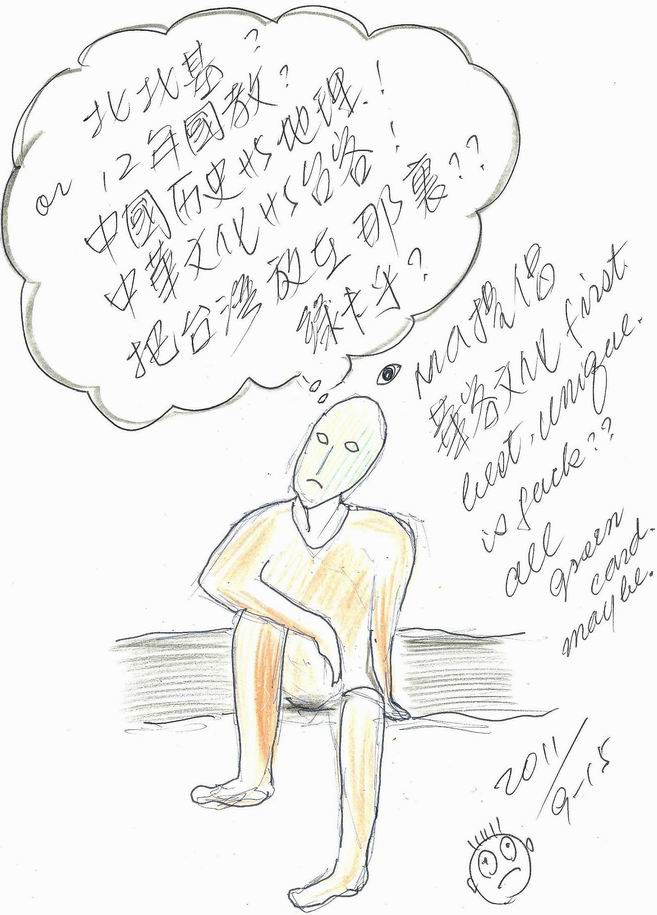 北北基?
or 12年國教?
中國历史的地理!
中華文化的台客!
把台灣放在那裏??
綠卡乎?
MA提倡
華客文化 first
best. unique.
is fuck??
all
green
card.
maybe.
2011/
9-15